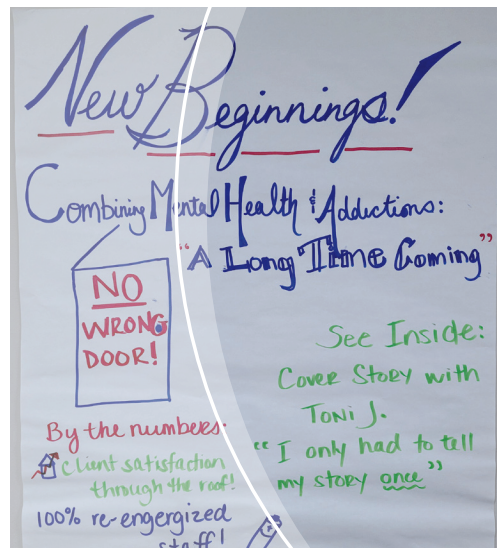 New Beginnings!
Combining Mental Health & Addictions:
"A Long Time Coming"
NO
WRONG
DOOR!
See Inside:
Cover Story with
Toni J.
"I only had to tell
my story once"
By the numbers:
Client satisfaction
through the roof!
100% re-engergized
staff!